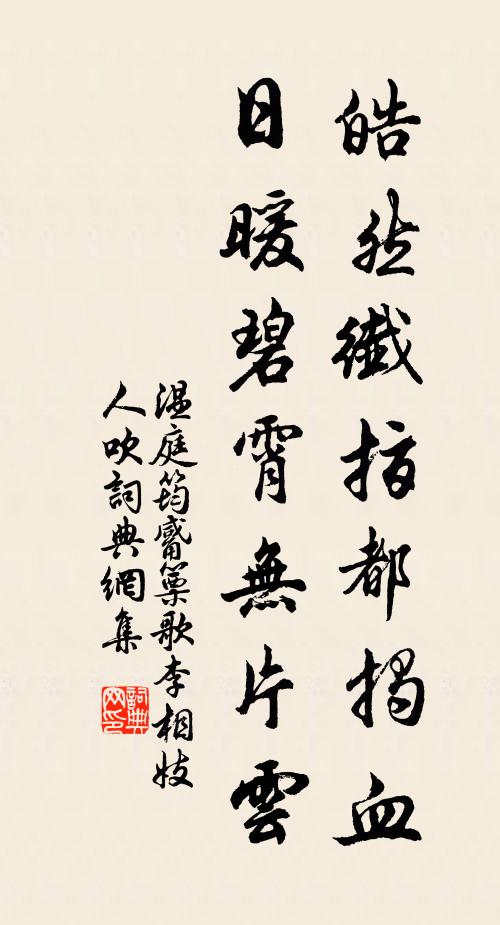 皓然纖指都揭血
日暖碧霄無片雲
溫庭筠觱篥歌李相妓
人吹詞典網集
詞典網印